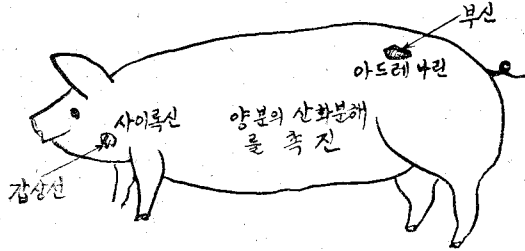 부신
아드레나린
사이록신
양분의 산화분해
를 촉진
갑상선